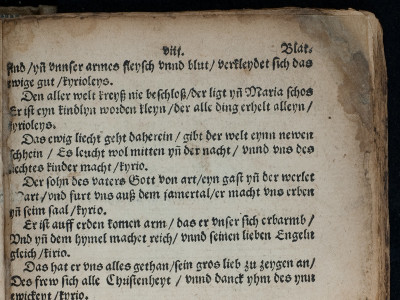 viij. Blat.
sind/yñ vnnser armes fleysch vnnd blut/ verkleydet sich das
ewige gut/kyrioleys.
Den aller welt kreyß nie beschloß/der ligt yñ Maria schos
Er ist eyn kindlyn worden kleyn/der alle ding erhelt alleyn/
kyrioleys.
Das ewig liecht geht daherein/ gibt der welt eynn newen
schhein/ Es leucht wol mitten yñ der nacht/ vnnd vns des
liechtes kinder macht/kyrio.
Der sohn des vaters Gott von art/eyn gast yñ der werlet
wart/vnd furt vns auß dem jamertal/er macht vns erben
yñ seim saal/kyrio.
Er ist auff erden komen arm/ das er vnser sich erbarmb/
Vnd yñ dem hymel machet reich/ vnnd seinen lieben Engeln
gleich/kirio.
Das hat er vns alles gethan/sein gros lieb zu zeygen an/
Des frew sich alle Christenheyt/ vnnd danck yhm des ynn
ewickeyt/kyrio.